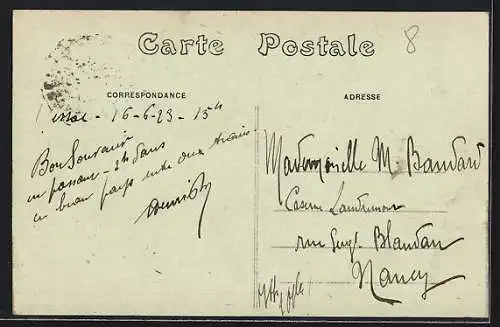 Carte Postale
8
CORRESPONDANCE
ADRESSE
16-6-23 - 15h
Bon Souvenir
en passant - 2h dans
ce beau pays entre deux
Mademoiselle M. Baudard
Caserne Landremont
rue Sergt Blandan
Nancy